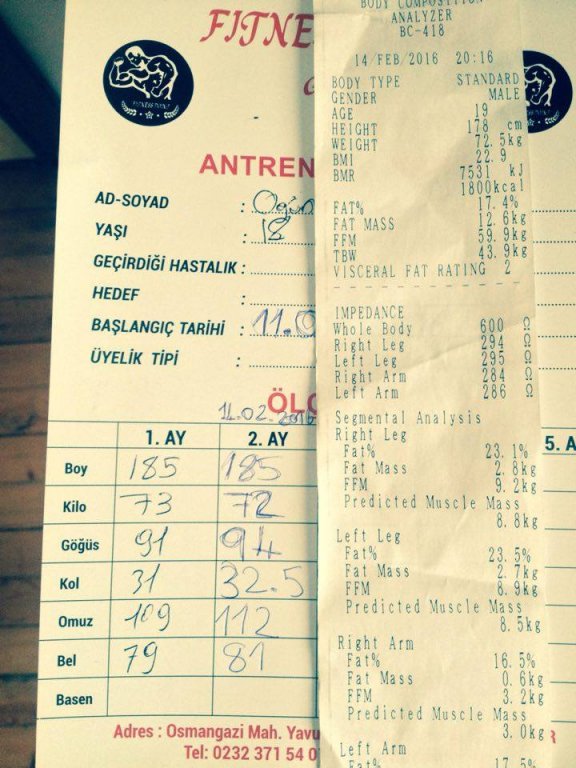 FITNE
ANTREN
AD-SOYAD :
YAŞI : 18
GEÇİRDİĞİ HASTALIK :
HEDEF :
BAŞLANGIÇ TARİHİ : 11.0
ÜYELİK TİPİ :
ÖLÇ
14.02.2016
1. AY 2. AY 5. A
Boy 185 185
Kilo 73 72
Göğüs 91 94
Kol 31 32.5
Omuz 109 112
Bel 79 81
Basen
Adres : Osmangazi Mah. Yavu
Tel: 0232 371 54 0
BODY COMPOSITION
ANALYZER
BC-418
14/FEB/2016 20:16
BODY TYPE STANDARD
GENDER MALE
AGE 19
HEIGHT 178 cm
WEIGHT 72.5kg
BMI 22.9
BMR 7531 kJ
1800kcal
FAT% 17.4%
FAT MASS 12.6kg
FFM 59.9kg
TBW 43.9kg
VISCERAL FAT RATING 2
IMPEDANCE
Whole Body 600 Ω
Right Leg 294 Ω
Left Leg 295 Ω
Right Arm 284 Ω
Left Arm 286 Ω
Segmental Analysis
Right Leg
Fat% 23.1%
Fat Mass 2.8kg
FFM 9.2kg
Predicted Muscle Mass
8.8kg
Left Leg
Fat% 23.5%
Fat Mass 2.7kg
FFM 8.9kg
Predicted Muscle Mass
8.5kg
Right Arm
Fat% 16.5%
Fat Mass 0.6kg
FFM 3.2kg
Predicted Muscle Mass
3.0kg
Left Arm
Fat% 17.5%